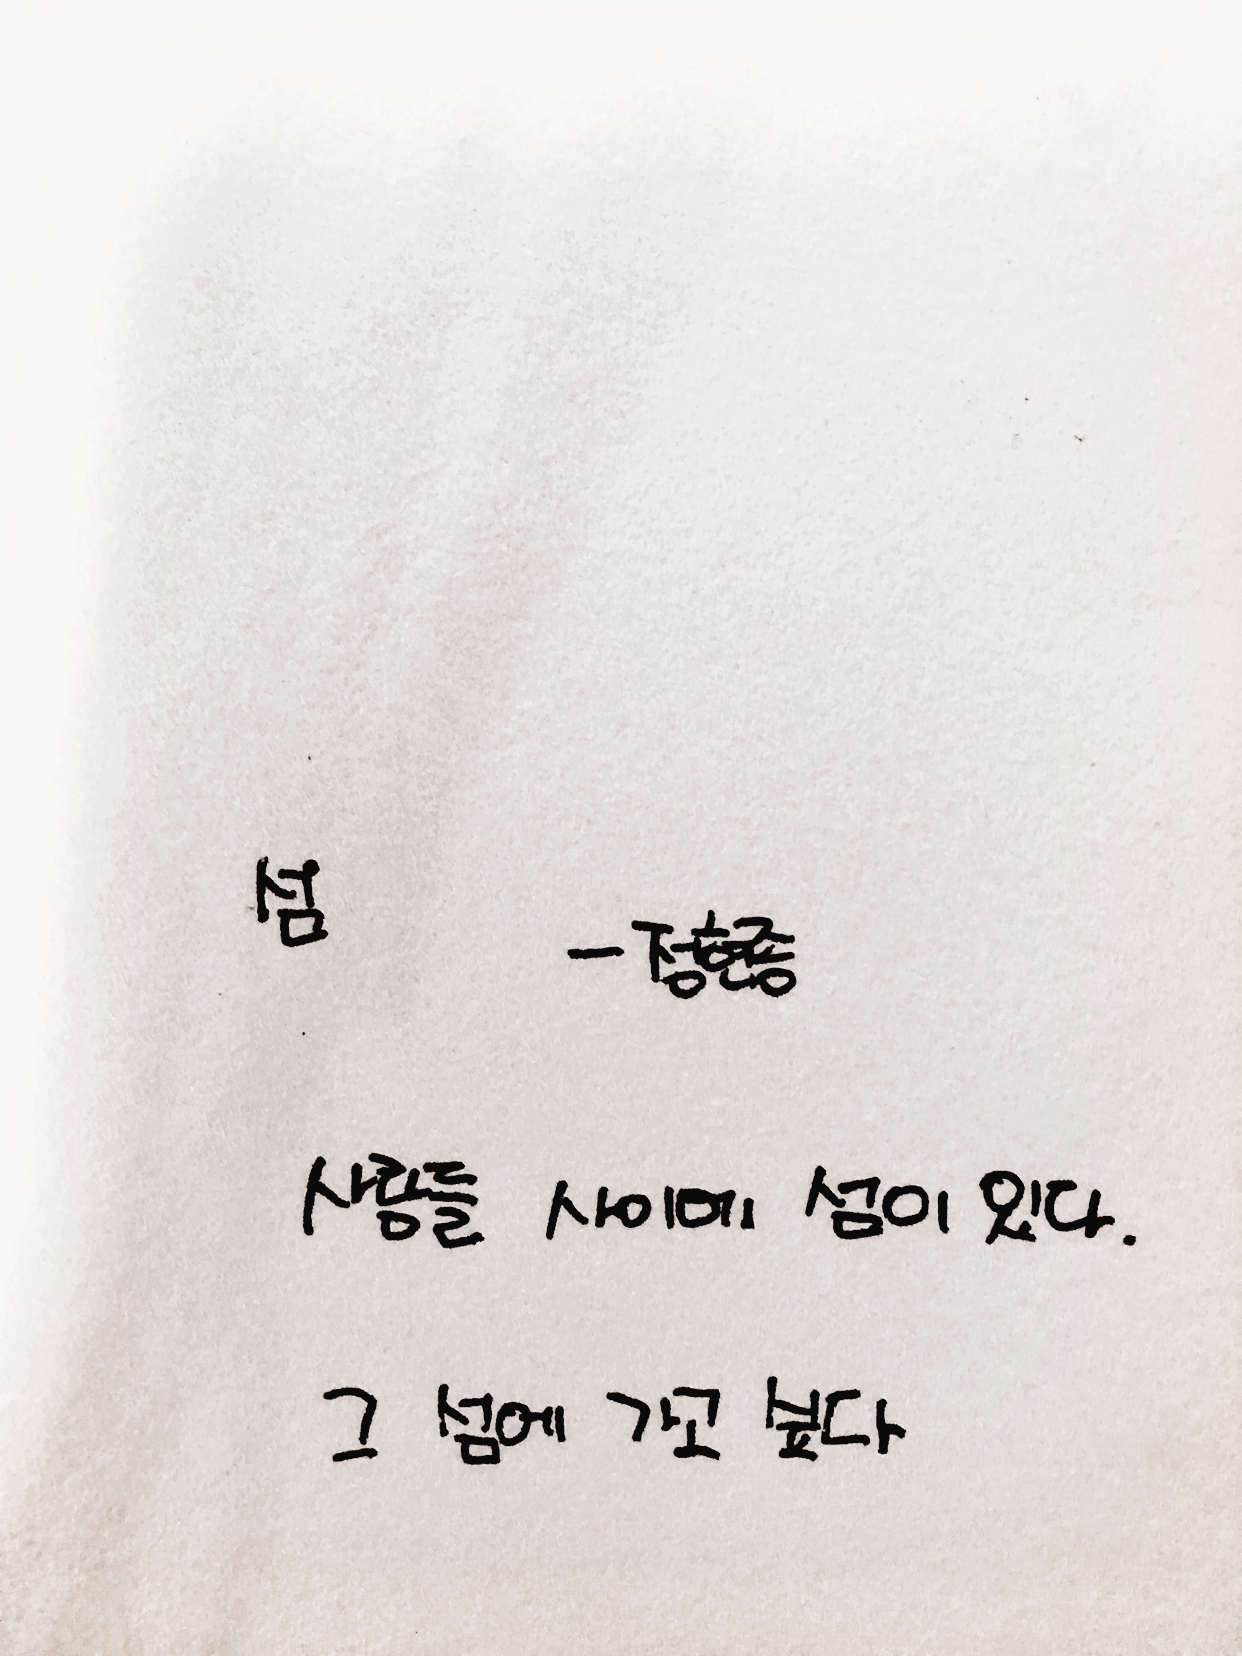 섬
- 정현종
사람들 사이에 섬이 있다.
그 섬에 가고 싶다